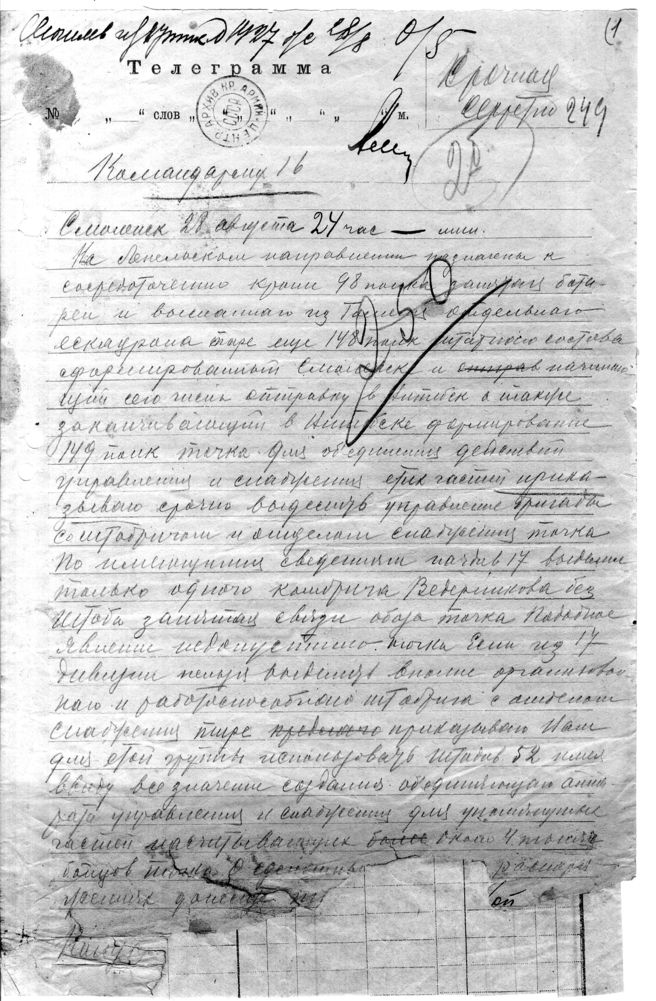 28/8
(1
Телеграмма
Срочная
№ „ “ слов „ „ “ „ “ м.
АРХИВ КР. АРМИИ ЦЕНТР
249
Командарму 16
Смоленск 28 августа 24 час — мин.
На Лепельском направлении назначены к
сосредоточению кроме 98 полка запасная бата-
реи и высланного из отдельного
эскадрона тире еще 148 полк штатного состава
сформированный Смоленск и начина
ющий сего числа отправку в Витебск а также
заканчивающий в Витебске формирование
149 полк точка Для объединения действий
управления и снабжения этих частей прика-
зываю срочно выделить управление бригады
со штабригом и отделом снабжения точка
По имеющимся сведениям начдив 17 выделил
только одного комбрига Ведерникова без
штаба запятая связи обоза точка Подобное
явление недопустимо точка Если из 17
дивизии нельзя выделить вполне организован
ного и работоспособного штабрига с отделом
снабжения тире приказываю Вам
для этой группы использовать штадив 52 имея
ввиду все значение создания объединяющего аппа-
рата управления и снабжения для упомянутых
частей насчитывающих более около 4 тысяч
бойцов точка О
донести
250